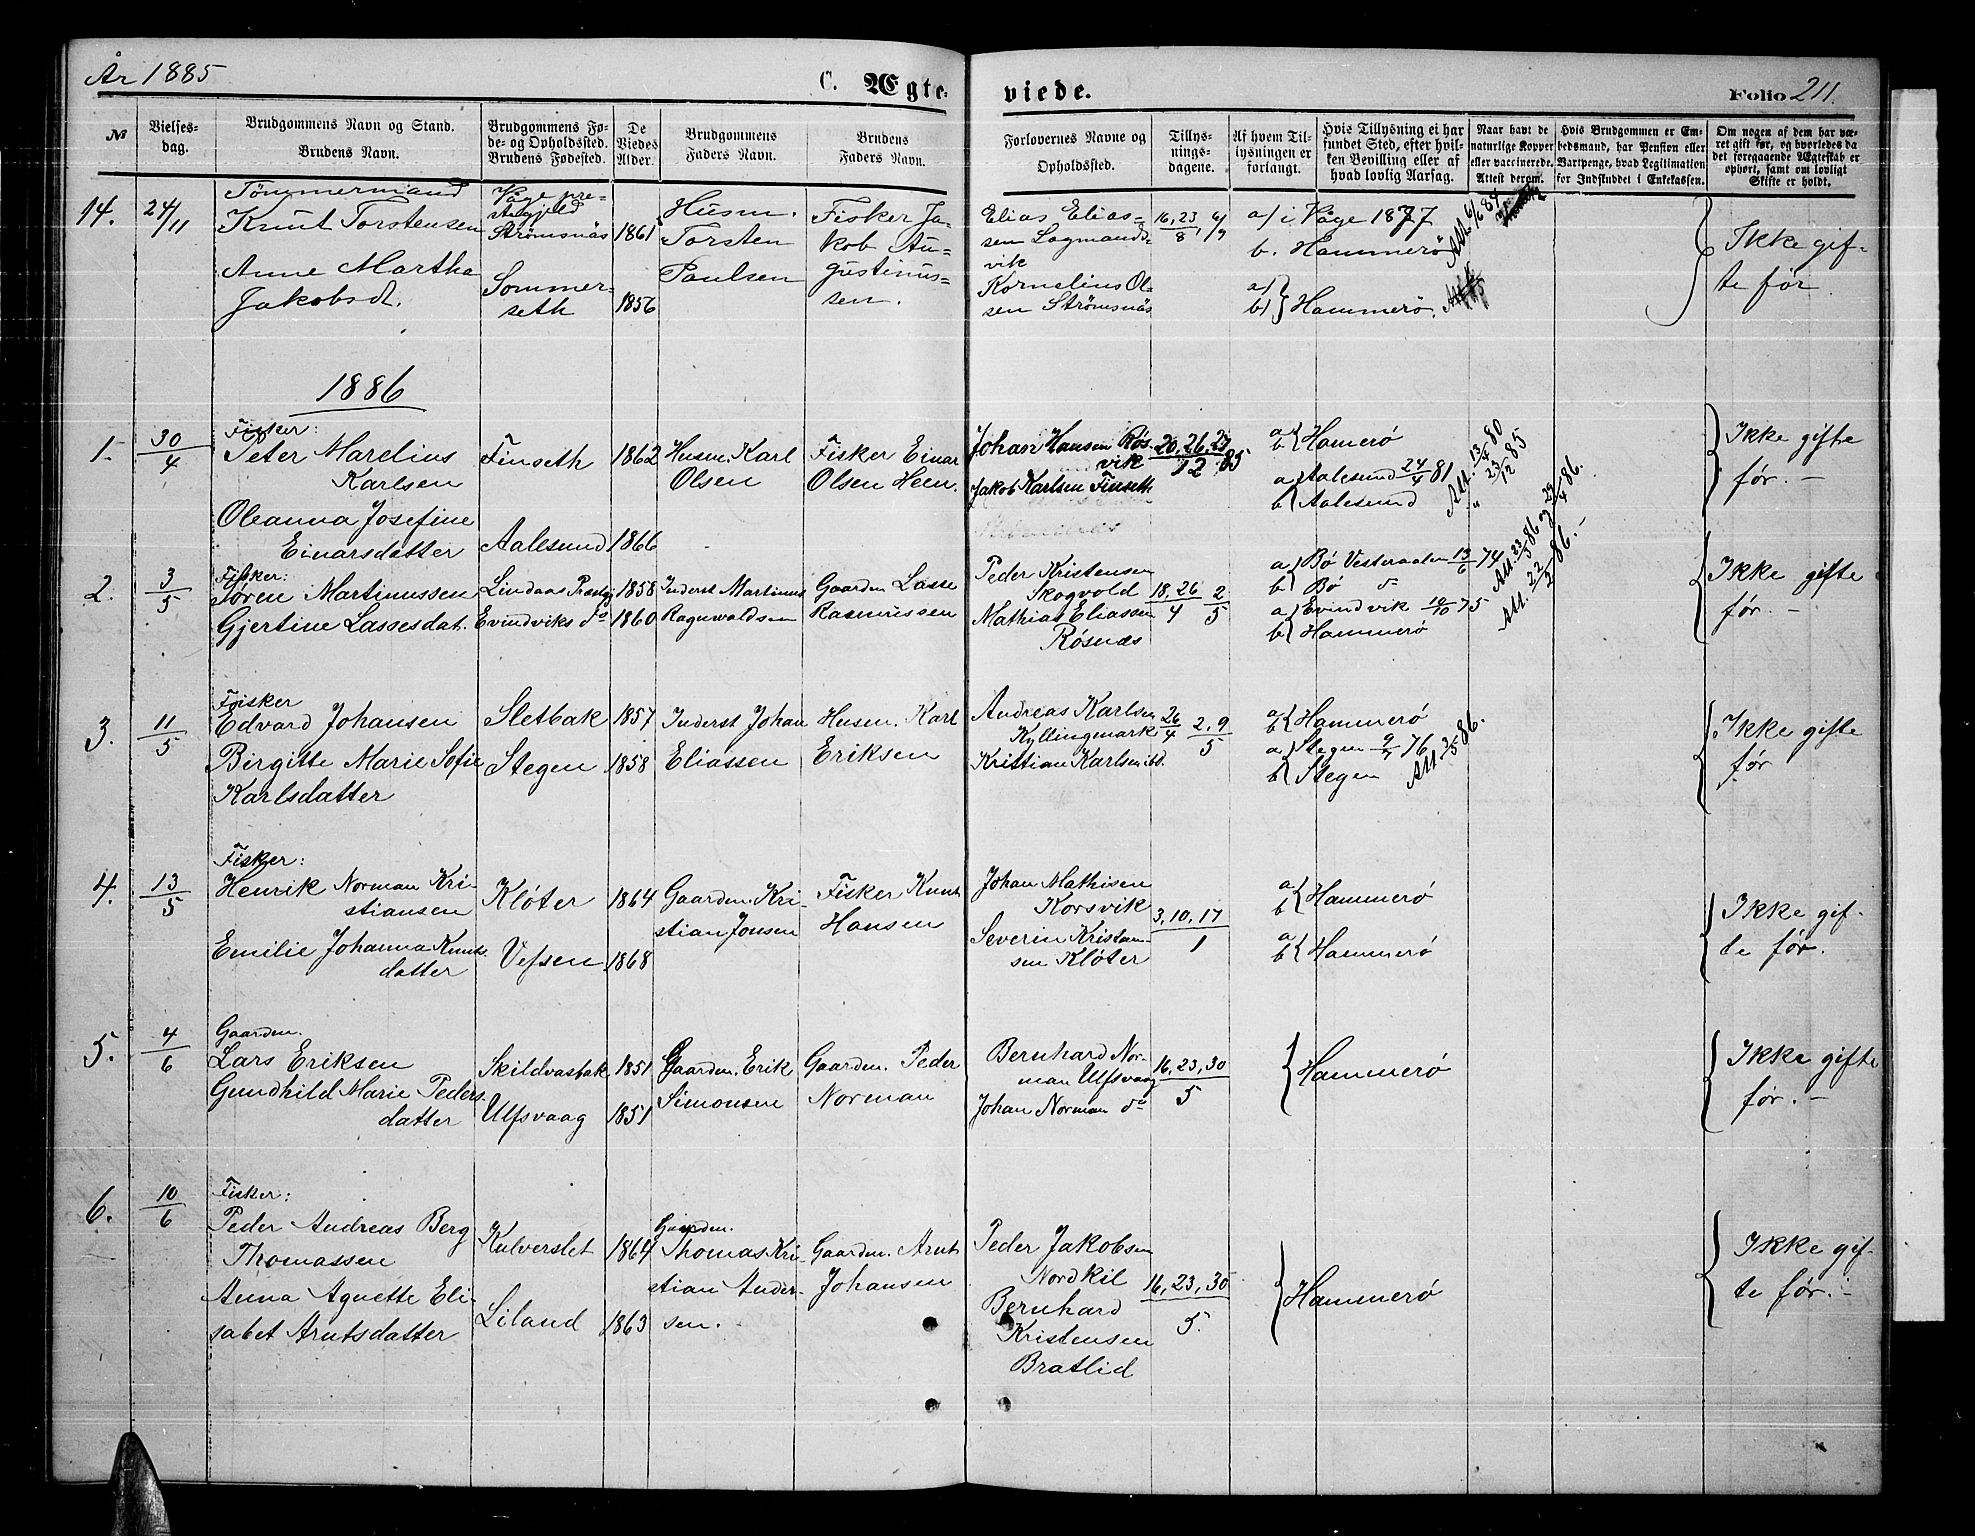 År 1885
C. Ægte-
viede.
Folio 211.
№
Vielses-
dag.
Brudgommens Navn og Stand.
Brudens Navn.
Brudgommens Fø-
de- og Opholdssted.
Brudens Fødested.
De
Viedes
Alder.
Brudgommens
Faders Navn.
Brudens
Faders Navn.
Forlovernes Navne og
Opholdssted.
Tillys-
nings-
dagene.
Af hvem Til-
lysningen er
forlangt.
Hvis Tillysning ei har
fundet Sted, efter hvil-
ken Bevilling eller af
hvad lovlig Aarsag.
Naar havt de
naturlige Kopper
eller vaccinerede.
Attest derom.
Hvis Brudgommen er Em-
bedsmand, har Pension eller
Vartpenge, hvad Legitimation
for Indskuddet i Enkekassen.
Om nogen af dem har væ-
ret gift før, og hvorledes da
det foregaaende Ægteskab er
ophørt, samt om lovligt
Skifte er holdt.
14.
24/11
Tömmermand
Knut Torstensen
Anne Martha
Jakobsd.
Vaage pre-
stegjeld
Strömsnäs
Sommer-
seth
1861
1856
Husm.
Torsten
Paulsen
Fisker Ja-
kob Au-
gustinus-
sen.
Elias Elias-
sen Lagmands-
vik
Kornelius Ol-
sen Strömsnäs
16, 23/8, 6/9
a) i Våge 1877
b. Hammerö
a)
b) } Hammerö.
Att 6/6 84
Ikke gif-
te før
1886
1.
30/4
Fisker:
Peter Marelius
Karlsen
Oleanna Josefine
Einarsdatter
Finseth
Aalesund
1862
1866
Husm. Karl
Olsen
Fisker Einar
Olsen Heen.
Johan Hansen Røs-
vik
Jakob Karlsen Finseth
20, 26, 27
12 85
a
b { Hamerö
a { Aalesund 24/4 81
b { Aalesund
Att. 13/4 80
" 23/12 85
Ikke gifte
før. —
2.
3/5
Fisker:
Søren Martinussen
Gjertine Lassesdat.
Lindaas Prestgj
Evindviks do
1858
1860
Inderst Martinus
Ragnvaldsen
Gaarden Lasse
Rasmussen
Peder Kristensen
Skogvold
Mathias Eliassen
Røsnæs
18, 26/4 2/5
a { Bø Vesteraalen 13/6 74
b { Bø do
a { Evindvik 10/10 75
b { Hammerö
Att. 23/3 86 og 29/4 86.
Att. 22/2 86.
Ikke gifte
før. —
3.
11/5
Fisker
Edvard Johansen
Birgitte Marie Sofie
Karlsdatter
Sletbak
Stegen
1857
1858
Inderst Johan
Eliassen
Husm. Karl
Eriksen
Andreas Karlsen
Kyllingmark
Kristian Karlsen ibd.
26/4 2, 9/5
a
b { Hammerö
a { Stegen 9/7 76
b { Stegen
Att. 3/5 86.
Ikke gifte
før
4.
13/5
Fisker:
Henrik Norman Kri-
stiansen
Emilie Johanna Knuts-
datter
Kløter
Vefsen
1864
1868
Gaarden. Kri-
stian Jonsen
Fisker Knut
Hansen
Johan Mathisen
Korsvik
Severin Kristian-
sen Kløter
3, 10, 17
1
a
b { Hammerö
a
b { Hammerö
Ikke gif-
te før.
5.
4/6
Gaarden.
Lars Eriksen
Gundhild Marie Peders-
datter
Skildvasbak
Ulfsvaag
1851
1851
Gaarden. Erik
Simonsen
Gaarden. Peder
Norman
Bernhard Nor-
man Ulfsvaag
Johan Norman do
16, 23, 30
5
{ Hammerö
Ikke gifte
før. —
6.
10/6
Fisker:
Peder Andreas Berg
Thomassen
Anna Agnette Eli-
sabet Arntsdatter
Kulverslet
Liland
1864
1863
Gaarden.
Thomas Kri-
stian Ander-
sen.
Gaarden. Arnt
Johansen
Peder Jakobsen
Nordkil
Bernhard
Kristensen
Bratlid
16, 23, 30
5.
{ Hammerö
Ikke gif-
te før. —